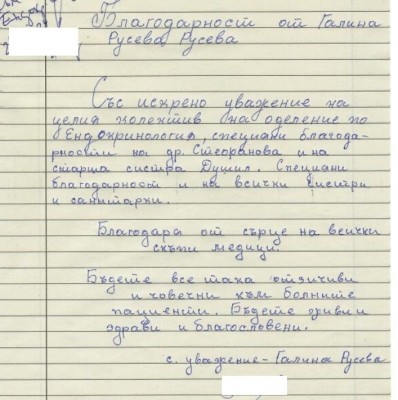 Благодарност от Галина
Русева Русева
Със искрено уважение на
целия колектив на оделение по
Ендокринология, специани благода-
рности на др. Стефанова и на
старша систра Душил. Специани
благодарност и на всички систри
и санитарки.
Благодаря от сърце на всички
скъпи медици.
Бъдете все така отзичиви
и човечни към болните
пациенти. Бъдете живи и
здрави и благословени.
с. уважение - Галина Русева